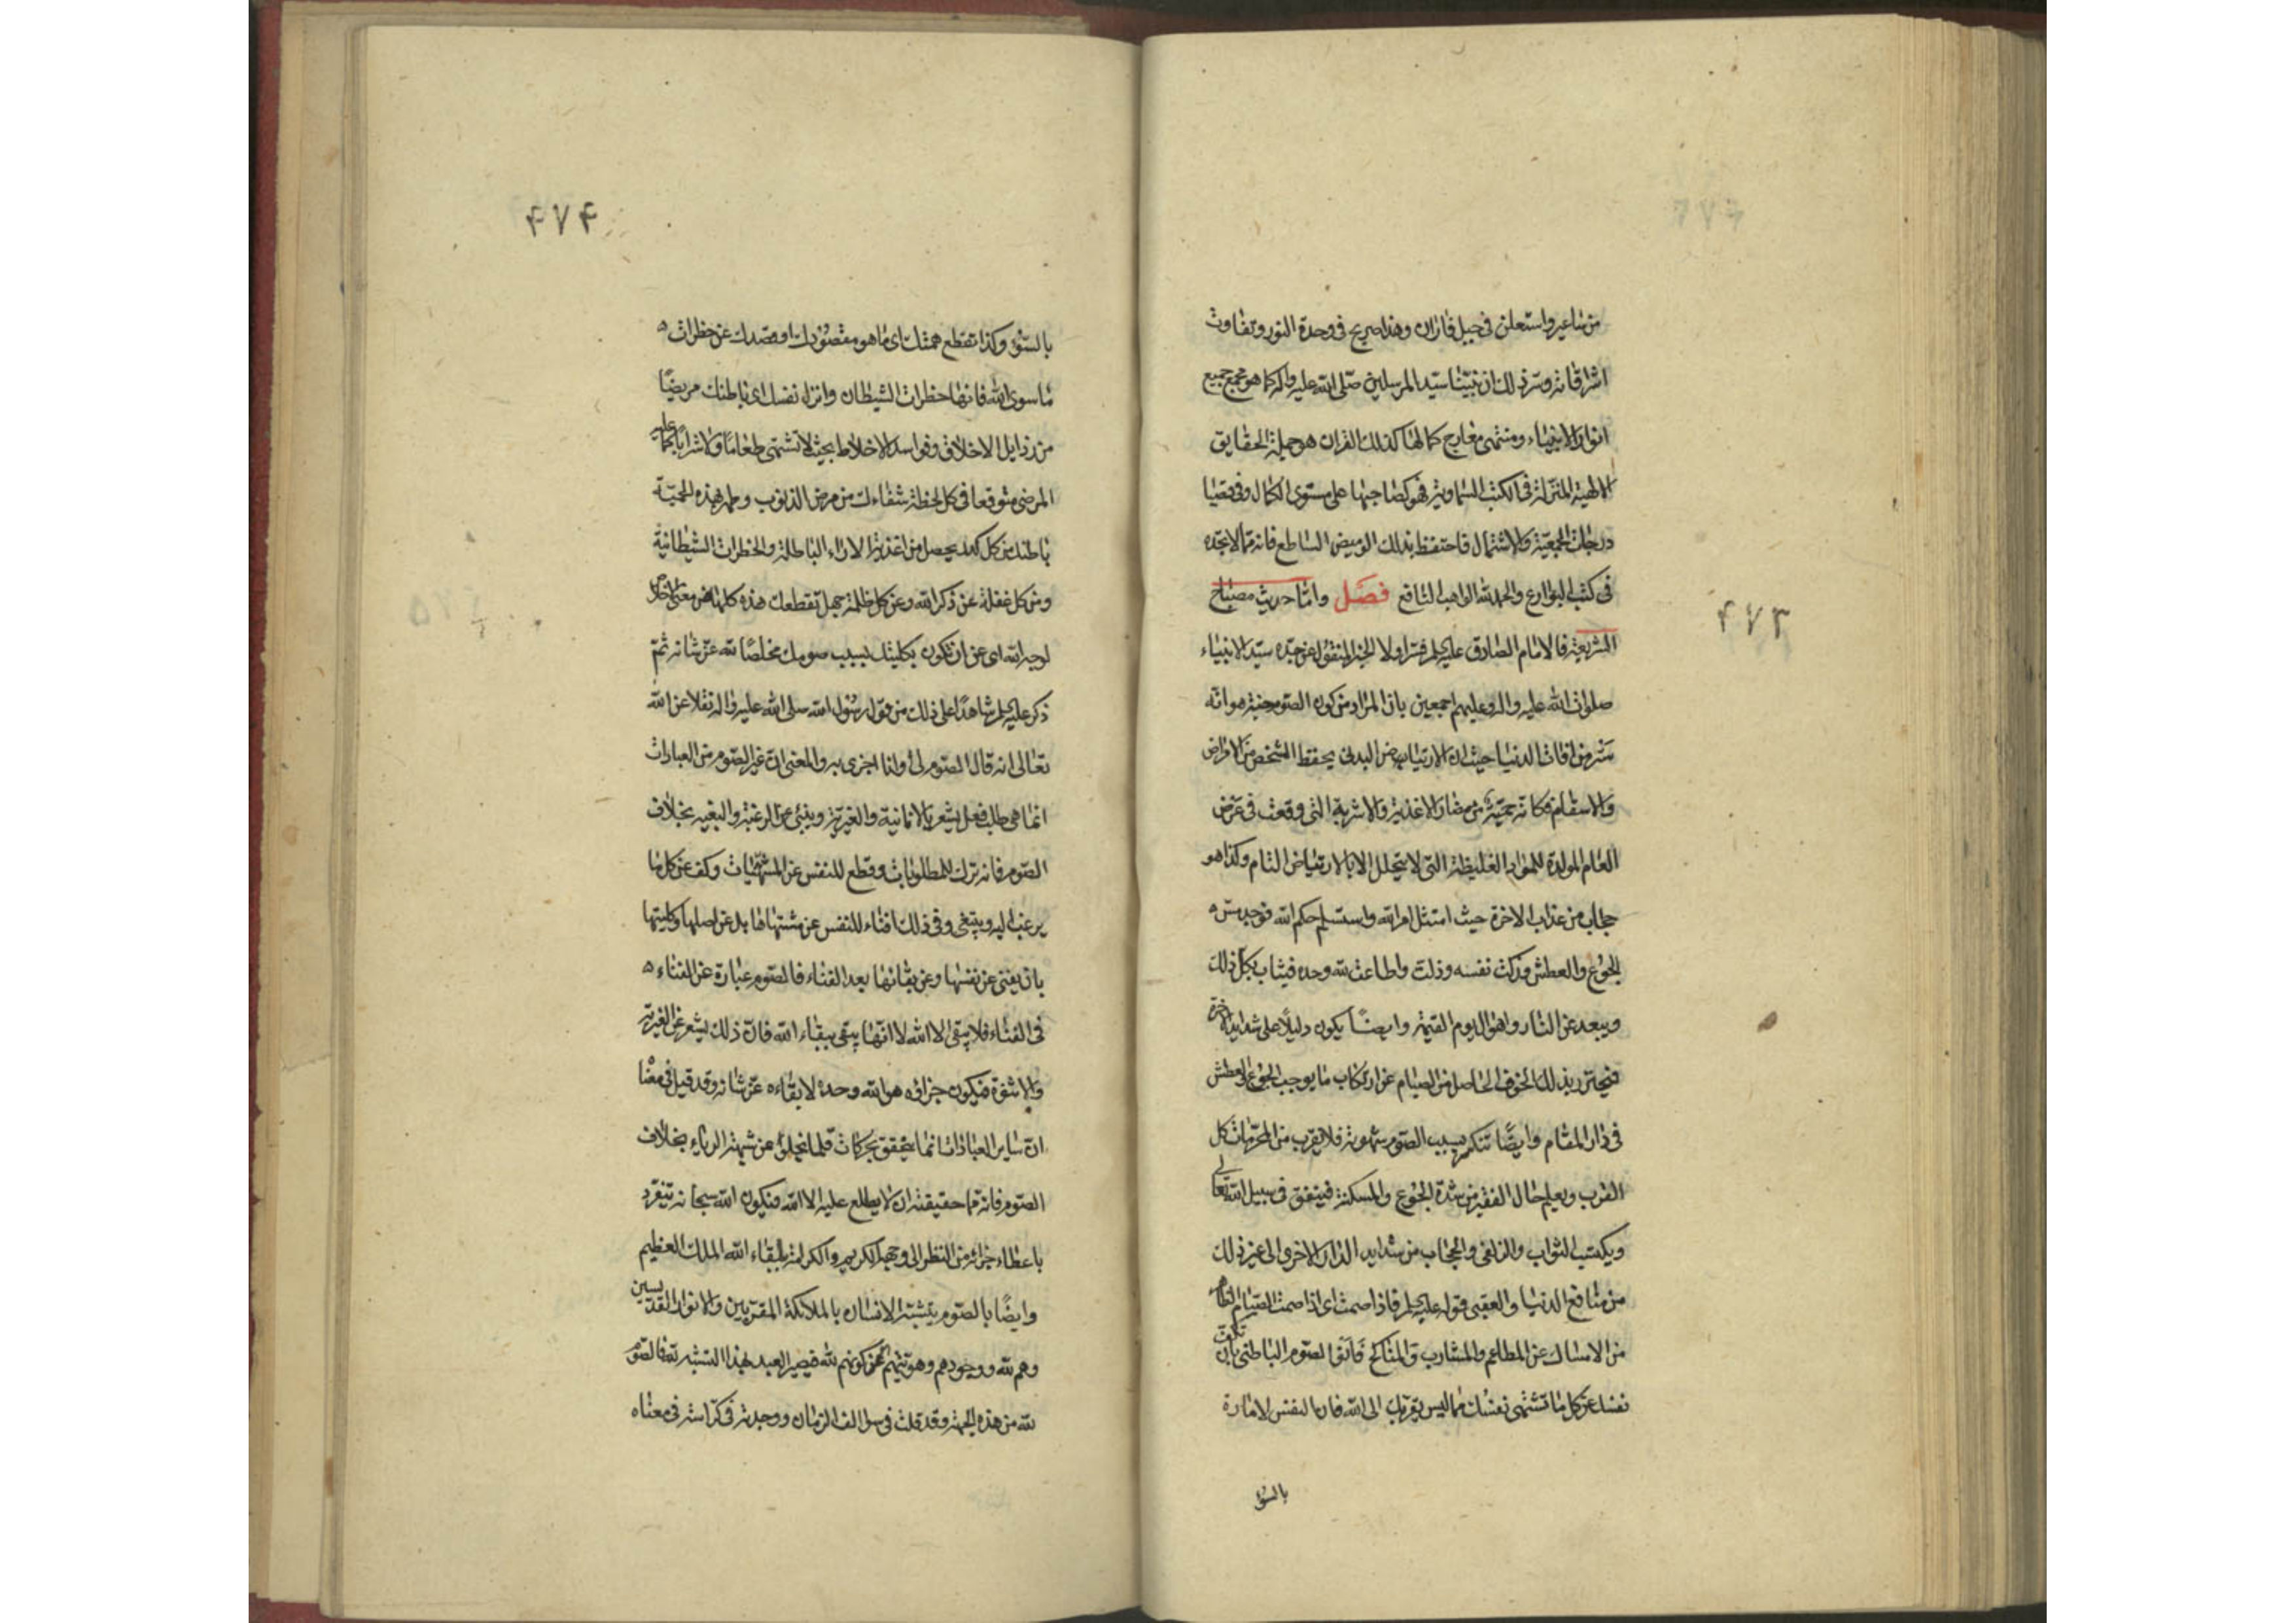 من ساعير واستعلن فى جبل فاران وهذا صريح فى وحدة النور وتفاوت
اشراقاته وسر ذلك ان نبينا سيد المرسلين صلى الله عليه واله كما هو مجمع جميع
انوار الانبياء ومنتهى معارج كمالها كذلك القران هو جملة الحقايق
الالهية المنزلة فى الكتب السماوية فهو كصاحبها على مستوى الكمال وفى
درجات الجمعية والاشتمال فاحتفظ بذلك الوميض الساطع فانه مما لا تجده
فى كتب البوارع والحمد لله الواهب النافع فصل واما حديث مصباح
الشريعة فالامام الصادق عليه السلم فسر اولا الخبر المنقول عن جده سيد الانبياء
صلوات الله عليه واله وعليهم اجمعين بان المراد من كون الصوم جنة هو انه
ستر من افات الدنيا حيث ان الارتياض البدنى يحفظ الشخص من الامراض
والاسقام فكانه حمية من مضار الاغذية والاشربة التى وقعت فى عرض
العام المولدة للمواد الغليظة التى لا يتحلل الا بالارتياض التام وكذا هو
حجاب من عذاب الاخرة حيث امتثل امر الله واستسلم حكم الله فوجد مس
الجوع والعطش فزكت نفسه وذلت واطاعت لله وحده فيثاب بكل ذلك
ويبعد عن النار واهوال يوم القيمة وايضا يكون دليلا على شدايد الاخرة
فيحترز بذلك الخوف الحاصل من الصيام عن ارتكاب ما يوجب الجوع والعطش
فى دار المقام وايضا تنكسر بسبب الصوم شهوته فلا يقرب من المحرمات كل
القرب ويعلم حال الفقير من شدة الجوع والمسكنة فينفق فى سبيل الله تعالى
ويكتسب الثواب والزلفى والحجاب من شدايد الدار الاخرى الى غير ذلك
من منافع الدنيا والعقبى قوله عليه السلم فاذا صمت اى اذا صمت الصيام الظاهر
من الامساك عن المطاعم والمشارب والمناكح فانو الصوم الباطنى بان تكف
نفسك عن كل ما تشتهى نفسك مما ليس يقربك الى الله فان النفس لامارة
بالسؤ
۴۷۳
۴۷۴
بالسؤ وكذا تقطع همتك اى ما هو مقصودك او قصدك عن خطرات
ما سوى الله فانها خطرات الشيطان وانزل نفسك اى باطنك مريضا
من رذايل الاخلاق وفواسد الاخلاط بحيث لا تشتهى طعاما ولا شرابا كما عليه
المرضى متوقعا فى كل لحظة شفاءك من مرض الذنوب وطهر بهذه الحمية
باطنك من كل كدر يحصل من اغذية الاراء الباطلة والخطرات الشيطانية
ومن كل غفلة عن ذكر الله وعن كل ظلمة جهل تقطعك هذه كلها عن معنى الاخلاص
لوجه الله اى عن ان تكون بكليتك بسبب صومك مخلصا لله عز شانه ثم
ذكر عليه السلم شاهدا على ذلك من قول رسول الله صلى الله عليه واله نقلا عن الله
تعالى انه قال الصوم لى وانا اجزى به والمعنى ان غير الصوم من العبادات
انما هى طلب فعل يشعر بالانانية والغيرية وينبئ عن الرغبة والبغية بخلاف
الصوم فانه ترك للمطلوبات وقطع للنفس عن المشتهيات وكف عن كل ما
يرغب اليه ويبتغى وفى ذلك افناء للنفس عن مشتهاها بل عن اصلها وكليتها
بان يفنى عن نفسها وعن بقائها بعد الفناء فالصوم عبارة عن الفناء
فى الفناء فلا يبقى الا الله لا انها يبقى ببقاء الله فان ذلك يشعر عن الغيرية
والاثنوة فيكون جزاؤه هو الله وحده لا بقاءه عز شانه وقد قيل فى معنا
ان ساير العبادات انما يتحقق بحركات قلما يخلو عن شبهة الرياء بخلاف
الصوم فانه مما حقيقته ان لا يطلع عليه الا الله فيكون الله سبحانه تنفرد
باعطاء جزائه من النظر الى وجهه الكريم والكرامة بلقاء الله الملك العظيم
وايضا بالصوم يتشبه الانسان بالملائكة المقربين والانوار القديسين
وهم لله ووجودهم وهويتهم كونهم لله فيصير العبد بهذا التشبه فالصوم
لله من هذه الجهة وقد قلت فى سوالف الزمان ووجدته فى كراسة فى معناه